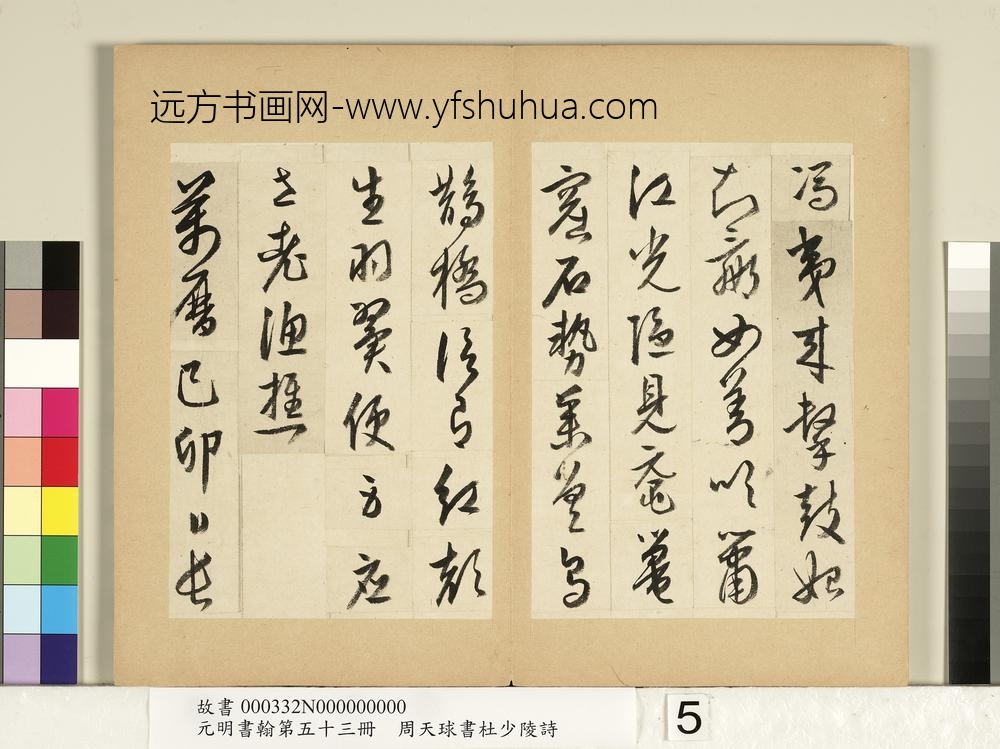 远方书画网-www.yfshuhua.com
馮夷来擊鼓始
知嬴女善吹簫
江光隱見黿鼉
窟石勢參差烏
鵲橋紅顏
生羽翼便應
老漁樵
萬曆己卯日長
故書 000332N000000000
元明書翰第五十三冊 周天球書杜少陵詩
5